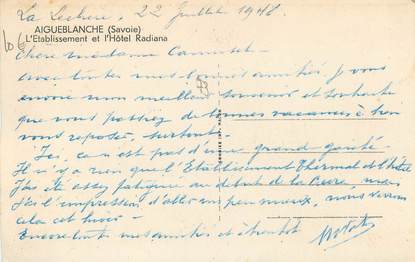 La Léchère. 22 Juillet 1948.
AIGUEBLANCHE (Savoie)
L'Etablissement et l'Hôtel Radiana
Chère Madame
avec toutes mes amitiés je vous
envoie mon meilleur souvenir et souhaite
que vous passiez de bonnes vacances à bien
vous reposer, surtout.
Ici, ça n'est pas d'une grande gaieté.
Il n'y a rien que l'Etablissement Thermal et l'hôtel
J'ai été assez fatiguée au début de la Cure, mais
j'ai l'impression d'aller un peu mieux, nous verrons
cela cet hiver.
Encore toutes mes amitiés et à bientôt